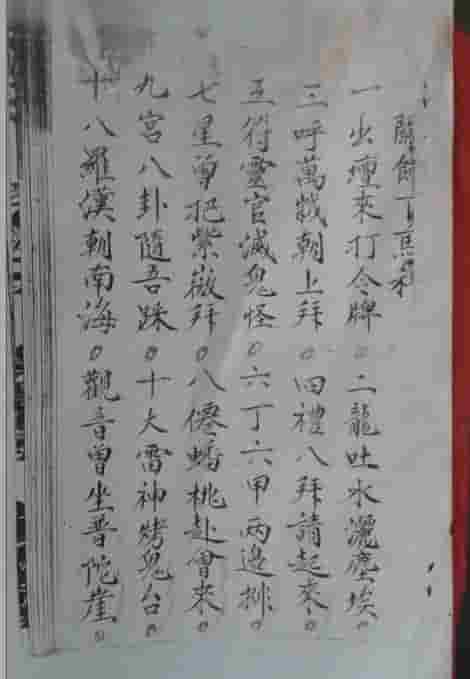 一出壇來打令牌。二龍吐水灑塵埃
三呼萬歲朝上拜。四禮八拜請起來。
五符靈官滅鬼怪。六丁六甲兩邊排。
七星曾把紫微拜。八僊蟠桃赴會來。
九宮八卦隨吾踩。十大雷神烤鬼台。
十八羅漢朝南海。觀音曾坐普陀崖。